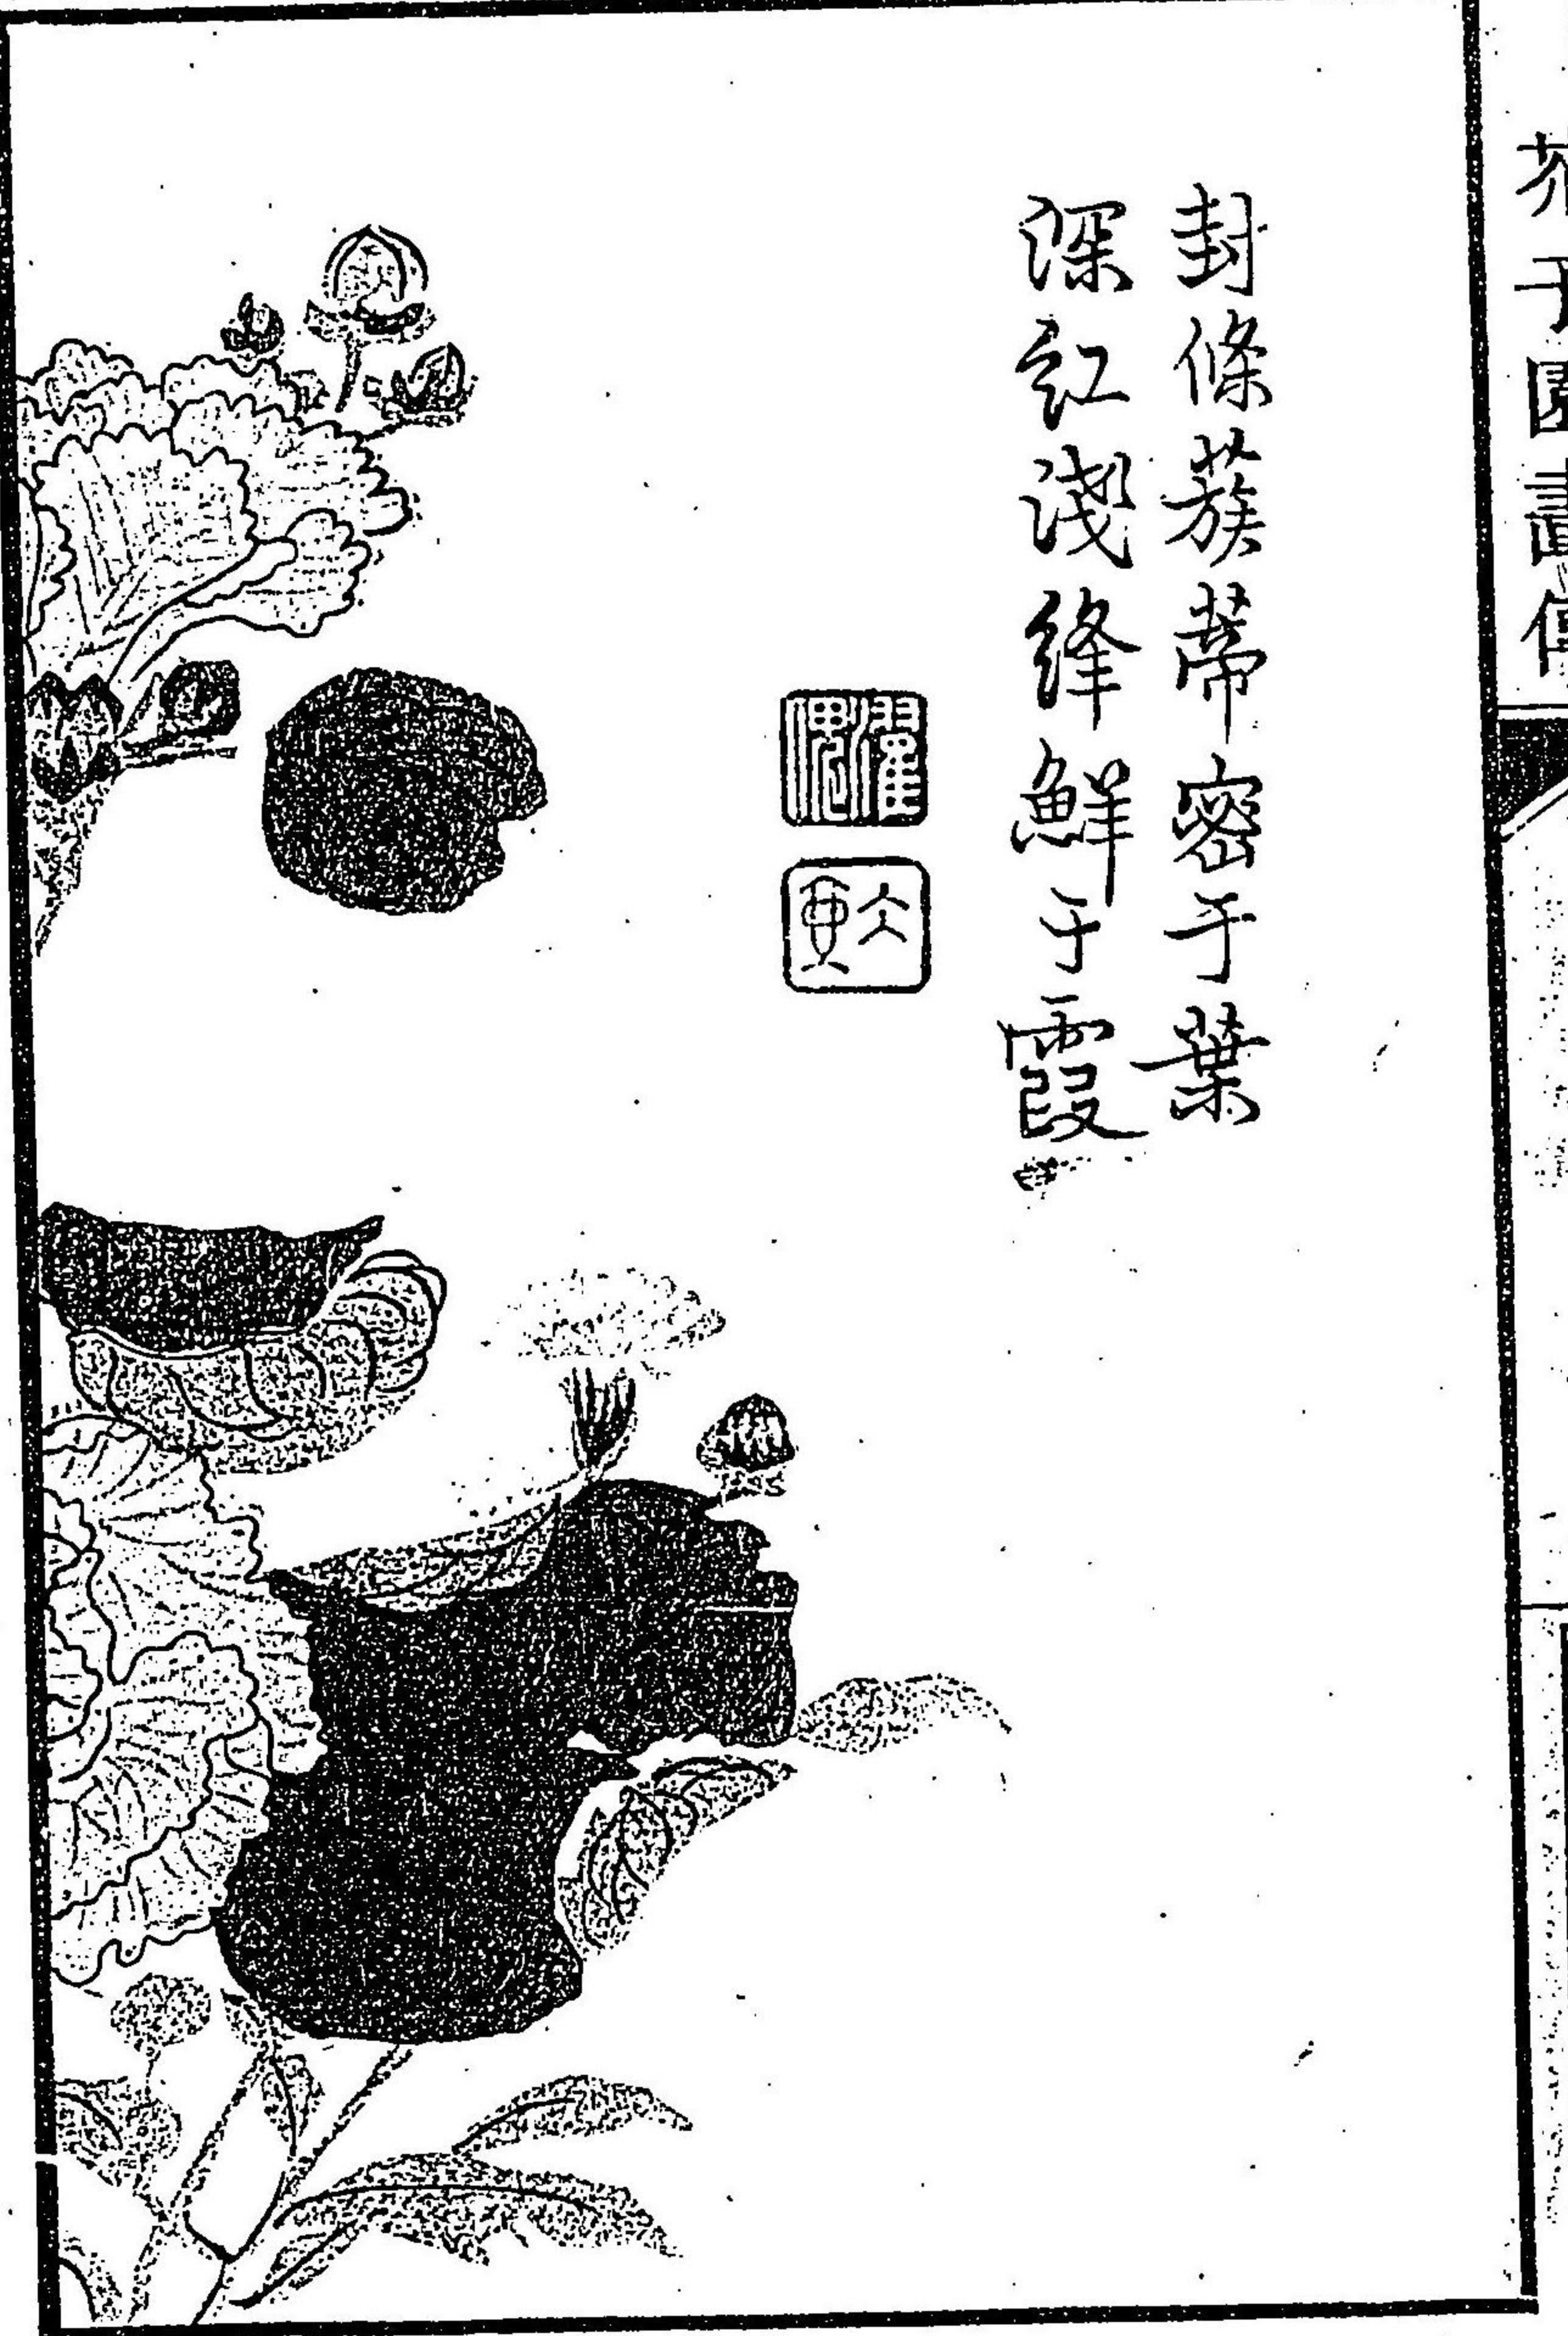 芥子園畫傳
封條蔟蒂密于葉
深紅淺絳鮮于霞